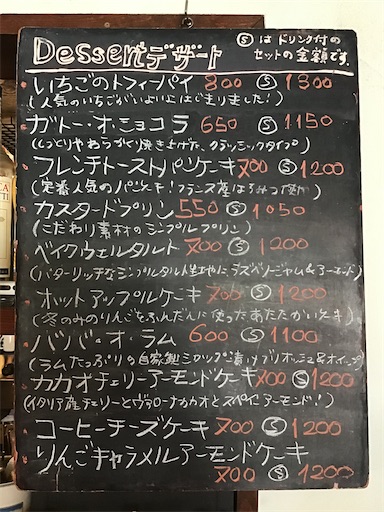 Dessert デザート
Ⓢ は ドリンク付の
セットの金額です。
いちごのトフィーパイ 800 Ⓢ 1300
(人気のいちごがいよいよはじまりました!)
ガトー・オ・ショコラ 650 Ⓢ 1150
(しっとりやわらかく焼き上げた、クラシックタイプ)
フレンチトーストパンケーキ 700 Ⓢ 1200
(定番人気のパンケーキ!フランス産はちみつ使用)
カスタードプリン 550 Ⓢ 1050
(こだわり素材のシンプルプリン)
ベイクウェルタルト 700 Ⓢ 1200
(バターリッチなシンプルタルト生地にラズベリージャム&アーモンド)
ホットアップルケーキ 700 Ⓢ 1200
(冬のみのりんごをふんだんに使ったあたたかいケーキ)
ババ・オ・ラム 600 Ⓢ 1100
(ラムたっぷりの自家製シロップ漬けブリオッシュ&ホイップ)
カカオチェリーアーモンドケーキ 700 Ⓢ 1200
(イタリア産チェリーとヴァローナカカオとスペインアーモンド!)
コーヒーチーズケーキ 700 Ⓢ 1200
りんごキャラメルアーモンドケーキ
700 Ⓢ 1200